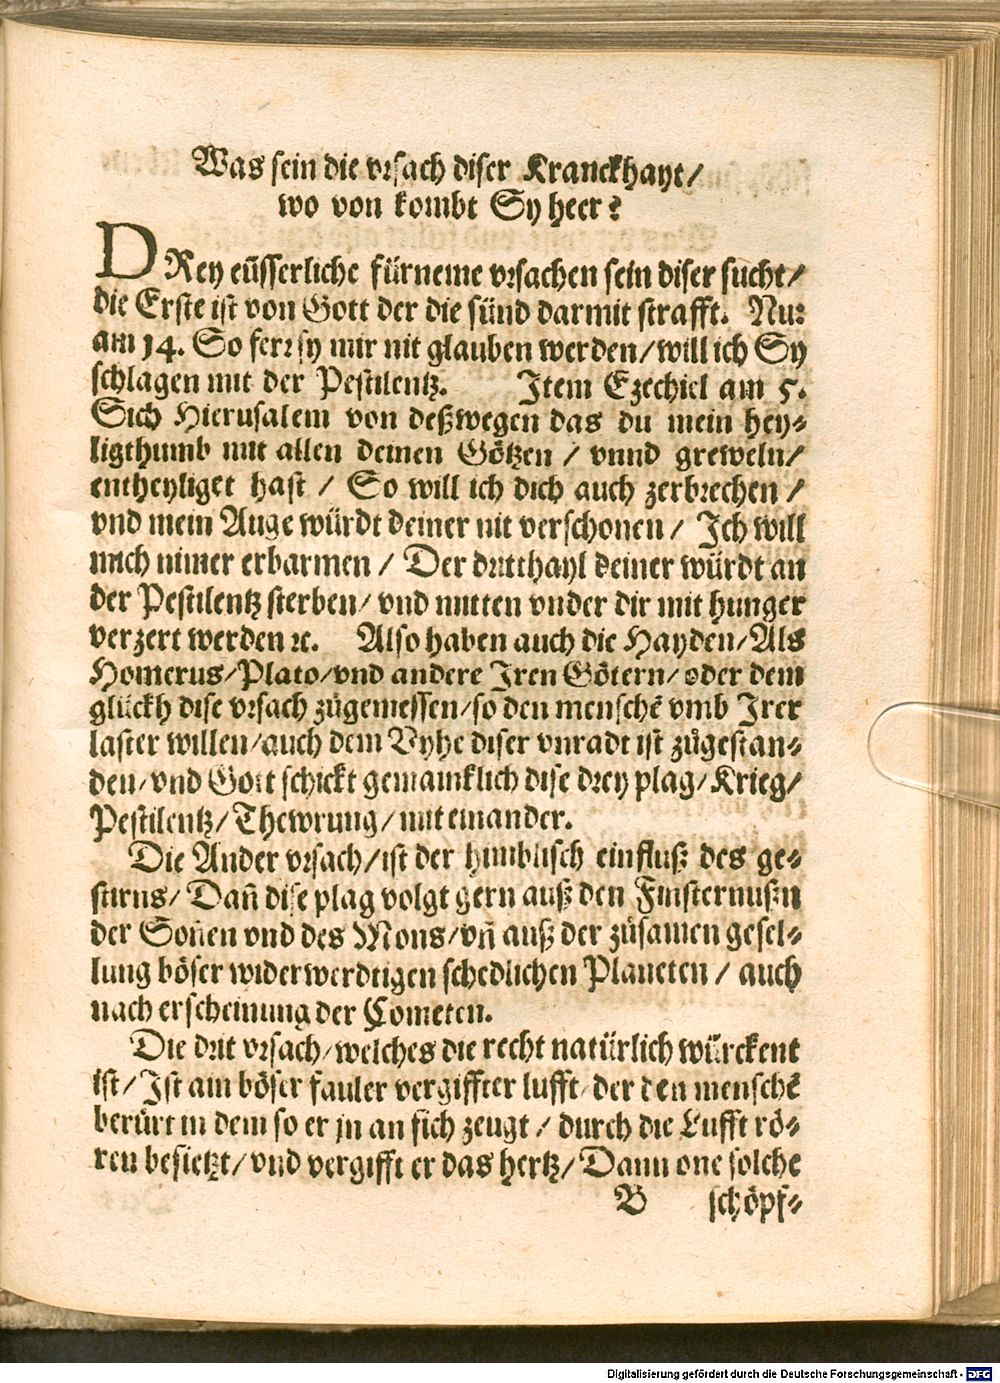 Was sein die vrsach diser Kranckhayt/
wo von kombt Sy heer?
DRey eüsserliche fürneme vrsachen sein diser sucht/
die Erste ist von Gott der die sünd darmit strafft. Nu:
am 14. So ferr sy mir nit glauben werden/will ich Sy
schlagen mit der Pestilentz. Item Ezechiel am 5.
Sich Hierusalem von deßwegen das du mein hey-
ligthumb mit allen deinen Götzen / vnnd greweln/
entheyliget hast / So will ich dich auch zerbrechen /
vnd mein Auge würdt deiner nit verschonen / Ich will
mich nimer erbarmen / Der dritthayl deiner würdt an
der Pestilentz sterben/ vnd mitten vnder dir mit hunger
verzert werden ꝛc. Also haben auch die Hayden/Als
Homerus/Plato/vnd andere Iren Götern/oder dem
glückh dise vrsach zůgemessen/so den menschẽ vmb Irer
laster willen/auch dem Vyhe diser vnradt ist zůgestan-
den/vnd Gott schickt gemainklich dise drey plag/Krieg/
Pestilentz/Thewrung/mit einander.
Die Ander vrsach/ist der himblisch einfluß des ge-
stirns/ Dañ dise plag volgt gern auß den Finsternußn
der Soñen vnd des Mons/vñ auß der zůsamen gesel-
lung böser widerwerdtigen schedlichen Planeten / auch
nach erscheinung der Cometen.
Die drit vrsach/welches die recht natürlich würckent
ist/Ist am böser fauler vergiffter lufft/der den menschẽ
berürt in dem so er jn an sich zeugt / durch die Lufft rö-
ren besietzt/vnd vergifft er das hertz/Dann one solche
B schöpf-
Digitalisierung gefördert durch die Deutsche Forschungsgemeinschaft - DFG